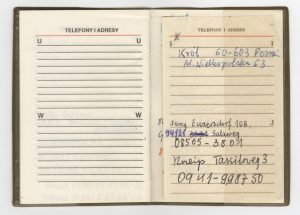 TELEFONY I ADRESY
U U
W W
TELEFONY I ADRESY
X
Król 60-603 Pozn
Al. Wielkopolska 63
Jung Enzersdorf 108
94121 Salzweg
08505-3801
Kneip Tassiloweg 3
0941-998750